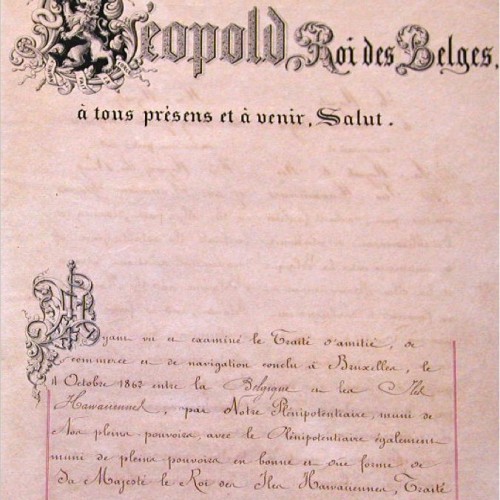 Léopold, Roi des Belges,
à tous présens et à venir, Salut.
Ayant vu et examiné le Traité d'amitié, de
commerce et de navigation conclu à Bruxelles, le
4 Octobre 1862 entre la Belgique et les Iles
Hawaiiennes, par Notre Plénipotentiaire, muni de
Nos pleins pouvoirs avec le Plénipotentiaire également
muni de pleins pouvoirs en bonne et due forme de
Sa Majesté le Roi des Iles Hawaiiennes, Traité